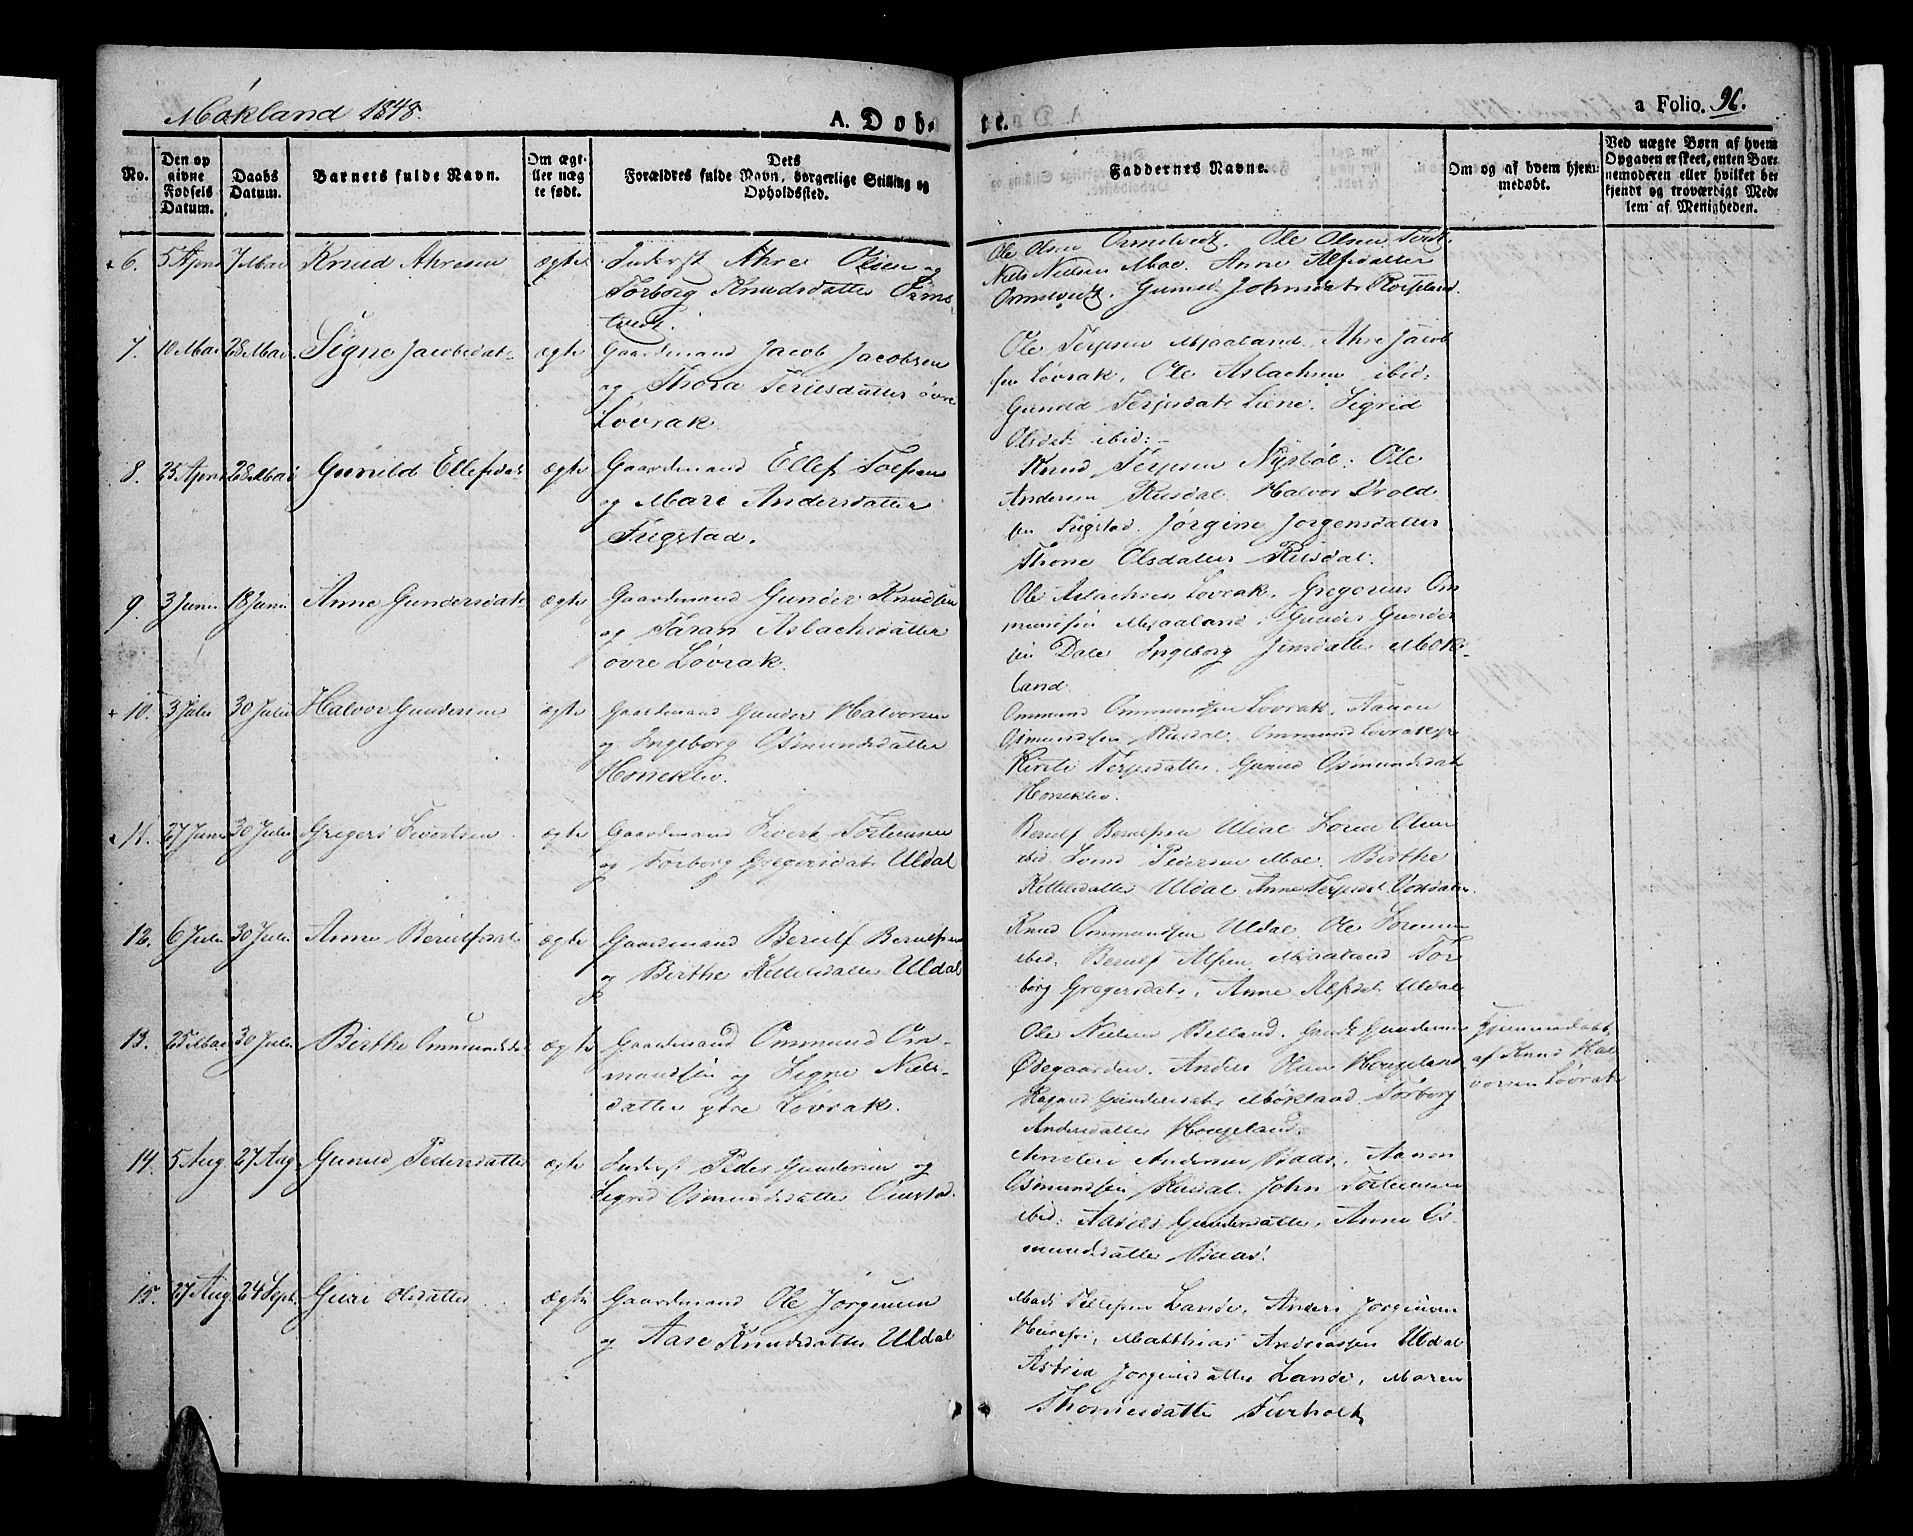 Møkland 1848.
A. Døb-
te.
a Folio. 96.
No.
Den op
givne
Fødsels
Datum.
Daabs
Datum.
Barnets fulde Navn.
Om ægt-
eller uæg
te født.
Dets
Forældres fulde Navn, borgerlige Stilling og
Opholdssted.
Faddernes Navne.
Om og af hvem hjem-
medøbt.
Ved uægte Børn af hvem
Opgaven er skeet, enten Bar-
nemoderen eller hvilket be-
kjendt og troværdigt Med-
lem af Menigheden.
6. 5 April 7 Mai Knud Ahresen ægte Inderst Ahre Olsen og
Torborg Knudsdatter Orms-
tvedt.
Ole Olsen Ormstvedt. Ole Olsen
Niels Nielsen Moe. Anne Alfsdatter
Ormstvedt. Gunild Johnsdat.
7. 10 Mai 28 Mai Signe Jacobsdat- ægte Gaardmand Jacob Jacobsen
og Thora Terjesdatter øvre
Løvrak.
Ole Terjesen Mjaaland. Ahre Jacob
sen Løvrak. Ole Aslachsen ibid:
Gunild Terjesdat. Liene. Sigrid
Olsdat. ibid:
8. 25 April 28 Mai Gunild Ellefsdat ægte Gaardmand Ellef Tolfsen
og Mari Andersdatter
Tugstad.
Knud Terjesen Nystøl. Ole
Andersen Risdal. Halvor
sen Tugstad. Jørgine Jørgensdatter
Thone Olsdatter Risdal.
9. 3 Juni 18 Juni Anne Gundersdat. ægte Gaardmand Gunder Knudsen
og Taran Aslachsdatter
øvre Løvrak.
Ole Aslachsen Løvrak. Gregorius Om
mundsen Mjaaland. Gunder Gunder
sen Dale. Ingeborg Jensdatter Møk-
land.
10. 3 Juli 30 Juli Halvor Gundersen ægte Gaardmand Gunder Halvorsen
og Ingeborg Osmundsdatter
Honeklev.
Ommund Ommundsen Løvrak. Aanon
Osmundsen Risdal. Ommund
Kirsti Terjesdatter. Gunild Osmundsdat.
Honeklev.
11. 27 Juni 30 Juli Gregers Sivertsen ægte Gaardmand Sivert Torkensen
og Torborg Gregersdat. Uldal
Berulf Berulfsen Uldal. Olsen
ibid. Pedersen Moe. Birthe
Kittelsdatter Uldal. Anne Terjesdat.
12. 6 Juli 30 Juli Anne Berulfsdat. ægte Gaardmand Berulf Berulfsen
og Birthe Kittelsdatter Uldal
Knud Ommundsen Uldal. Ole Sørensen
ibid. Berulf Alfsen Mjaaland. Tor
borg Gregersdat. Anne Alfsdat. Uldal
13. 25 Mai 30 Juli Birthe Ommundsdat. ægte Gaardmand Ommund Om-
mundsen og Signe Niels-
datter ytre Løvrak.
Ole Nielsen Belland. Gundersen
Ødegaarden. Anders Hougeland
Gundersdat. Møkland. Torborg
Andersdatter Hougeland.
Hjemmedøbt
af Knud Hal
vorsen Løvrak
14. 5 Aug. 27 Aug. Gunild Pedersdatter ægte Inderst Peder Gundersen og
Sigrid Osmundsdatter
Andersen Aanon
Osmundsen Risdal. John Torkensen
ibid: Gundersdatter. Anne Os-
mundsdatter
15. 27 Aug. 24 Sept. Guri Olsdatter ægte Gaardmand Ole Jørgensen
og Aase Knudsdatter Uldal
Mads Lande. Anders Jørgensen
Matthias Andreassen Uldal
Astrid Jørgensdatter Lande. Maren
Thomesdatter